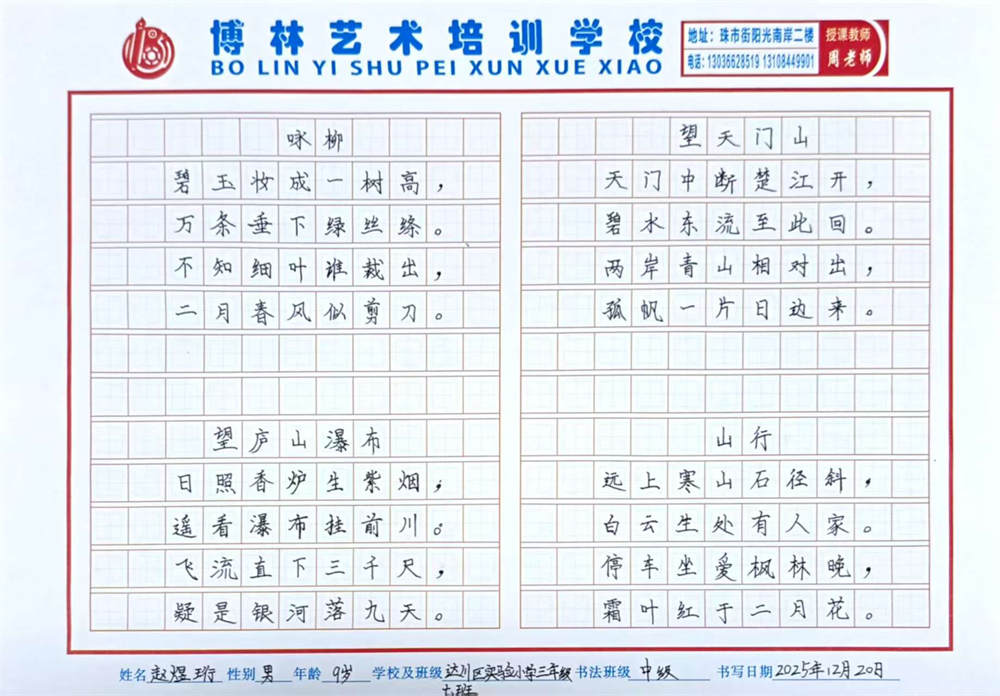 博林艺术培训学校
BO LIN YI SHU PEI XUN XUE XIAO
地址：珠市街阳光南岸二楼
电话：13036628519 13108449901
授课教师
周老师
咏柳
碧玉妆成一树高，
万条垂下绿丝绦。
不知细叶谁裁出，
二月春风似剪刀。
望庐山瀑布
日照香炉生紫烟，
遥看瀑布挂前川。
飞流直下三千尺，
疑是银河落九天。
望天门山
天门中断楚江开，
碧水东流至此回。
两岸青山相对出，
孤帆一片日边来。
山行
远上寒山石径斜，
白云生处有人家。
停车坐爱枫林晚，
霜叶红于二月花。
姓名 赵煜珩 性别 男 年龄 9岁 学校及班级 达川区实验小学三年级 书法班级 中级 书写日期 2025年12月20日
七班